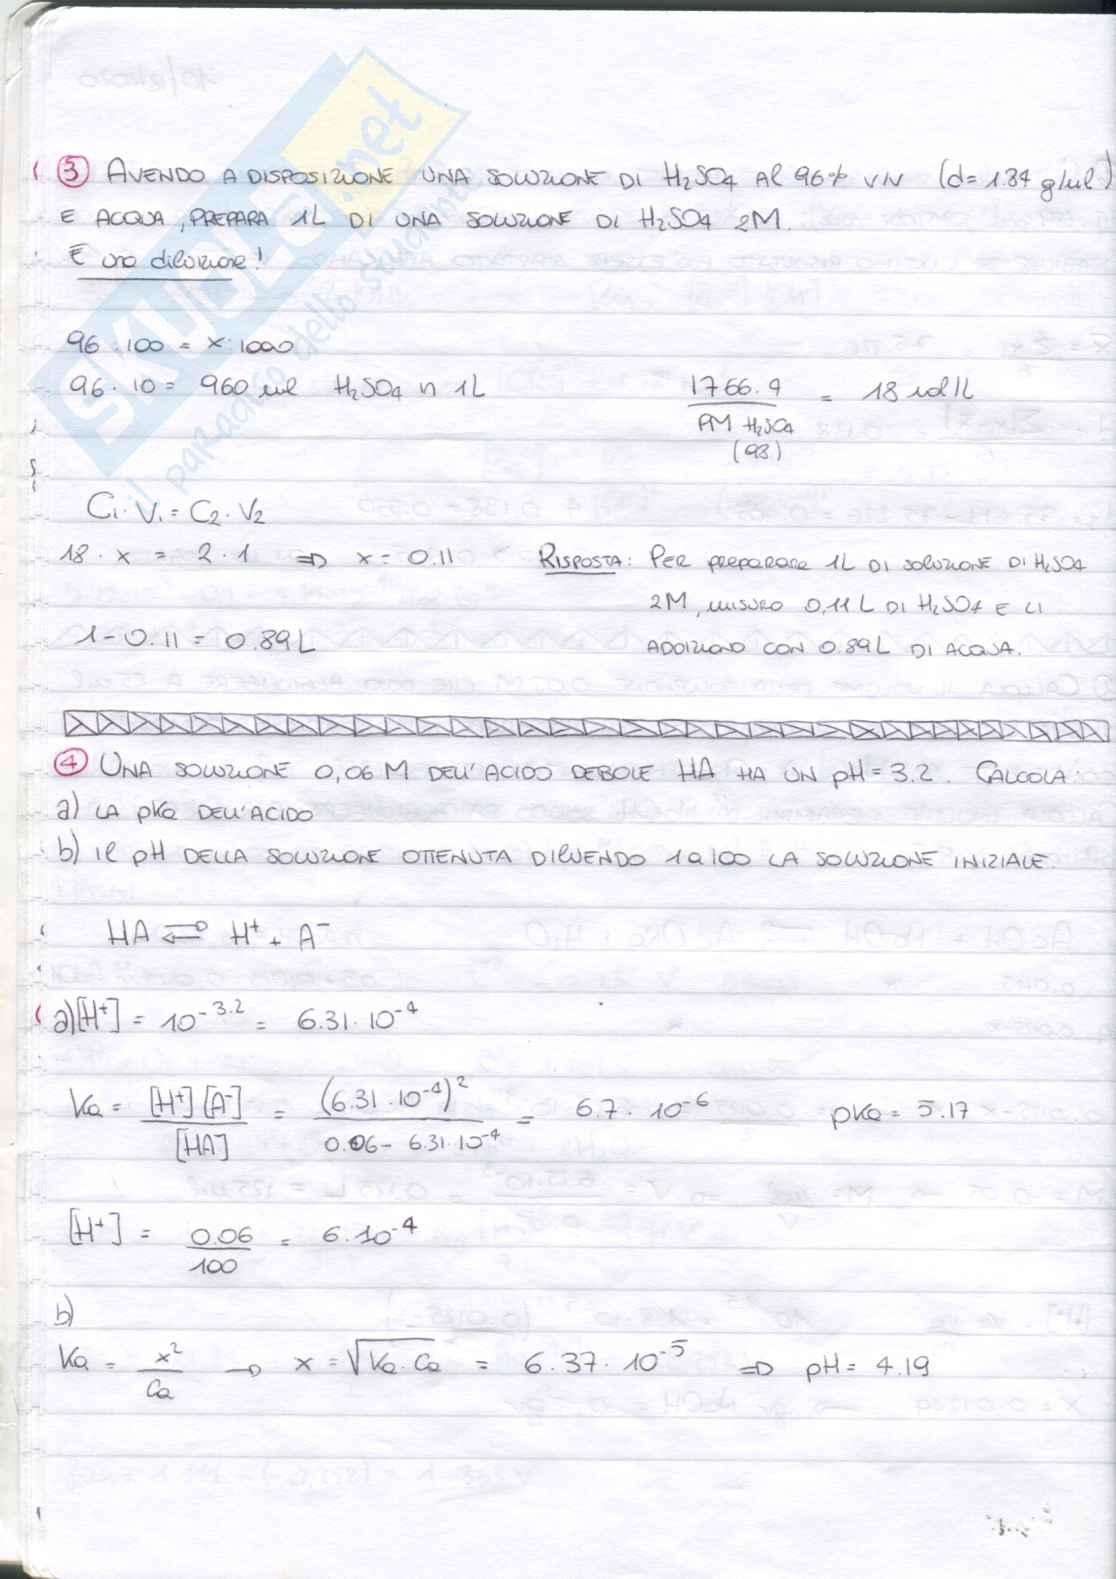 ③ AVENDO A DISPOSIZIONE UNA SOLUZIONE DI H₂SO₄ Al 96% V/V (d=1.84 g/ml)
E ACQUA, PREPARA 1L DI UNA SOLUZIONE DI H₂SO₄ 2M.
È una diluizione!
96 : 100 = x : 1000
96 · 10 = 960 ml H₂SO₄ in 1L
1766.4 / PM H₂SO₄ (98) = 18 mol/L
C₁ · V₁ = C₂ · V₂
18 · x = 2 · 1 ⇒ x = 0.11
RISPOSTA: PER preparare 1L DI soluzione DI H₂SO₄
2M, misuro 0,11 L DI H₂SO₄ E LI
1 - 0.11 = 0.89L
ADDIZIONO CON 0.89L DI ACQUA.
④ UNA SOLUZIONE 0,06 M DELL'ACIDO DEBOLE HA HA UN pH = 3.2. CALCOLA:
a) LA pKa DELL'ACIDO
b) il pH DELLA SOLUZIONE OTTENUTA DILUENDO 1 a 100 LA SOLUZIONE INIZIALE.
HA ⇌ H⁺ + A⁻
a) [H⁺] = 10⁻³·² = 6.31 · 10⁻⁴
Ka = [H⁺][A⁻] / [HA] = (6.31 · 10⁻⁴)² / 0.06 - 6.31·10⁻⁴ = 6.7 · 10⁻⁶ pKa = 5.17
[H⁺] = 0.06 / 100 = 6·10⁻⁴
b)
Ka = x² / Ca → x = √Ka · Ca = 6.37 · 10⁻⁵ ⇒ pH = 4.19
SKUOLA.net
il paradiso dello studente